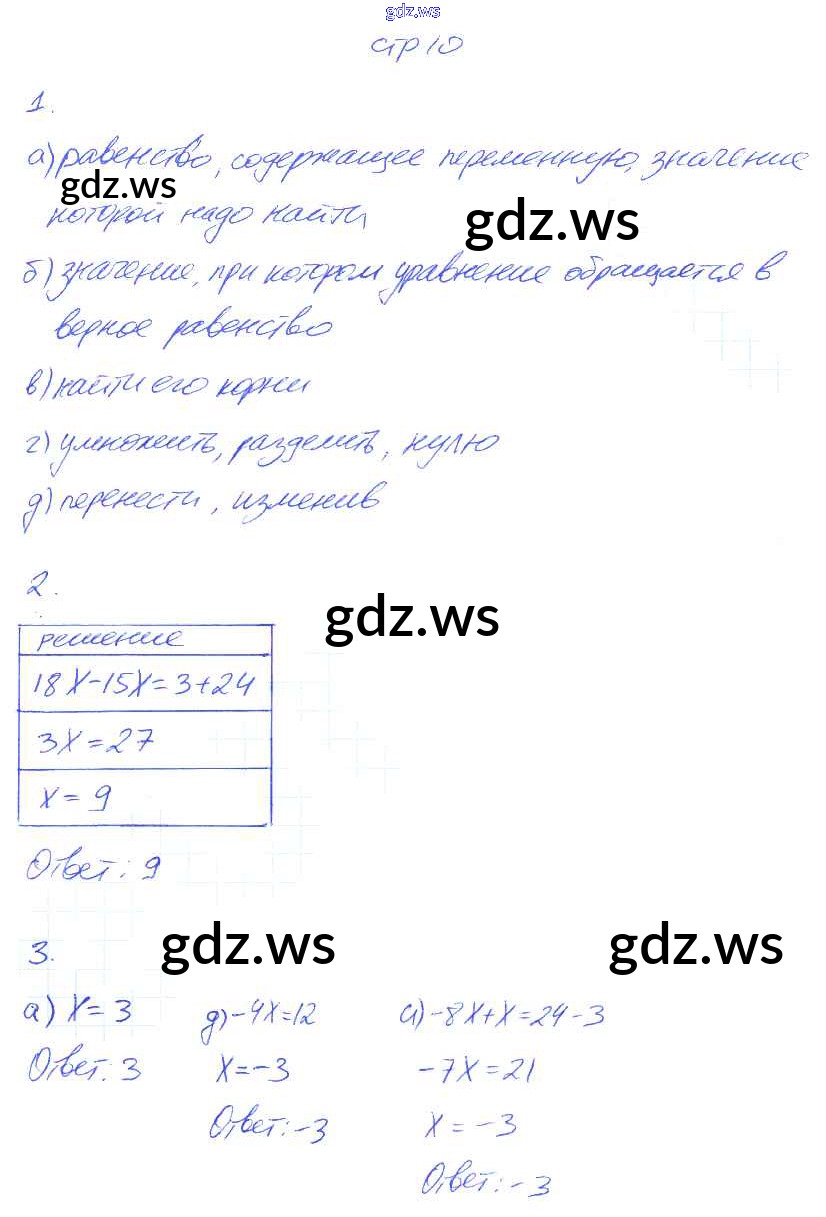 gdz.ws
стр 10
1.
а) равенство, содержащее переменную, значение
gdz.ws
которой надо найти
gdz.ws
б) значение, при котором уравнение обращается в
верное равенство
в) найти его корни
г) умножить, разделить, нулю
д) перенести, изменив
2.
gdz.ws
решение
18x-15x=3+24
3x=27
x=9
Ответ: 9
gdz.ws
gdz.ws
3.
а) x=3 д) -4x=12 и) -8x+x=24-3
Ответ: 3 x=-3 -7x=21
Ответ: -3 x=-3
Ответ: -3